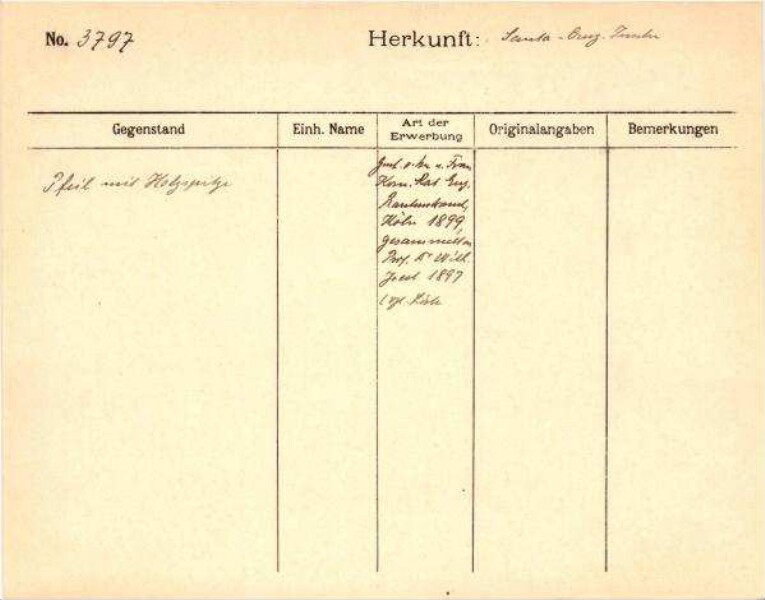 No. 3797 Herkunft: Santa-Cruz-Inseln
Gegenstand Einh. Name Art der Erwerbung Originalangaben Bemerkungen
Pfeil mit Holzspitze
Frau
Kom. Rat Eug.
Rautenstrauch,
Köln 1899,
gesammelt v.
Prof. Dr Wilh.
Joest 1897
(vgl. Liste